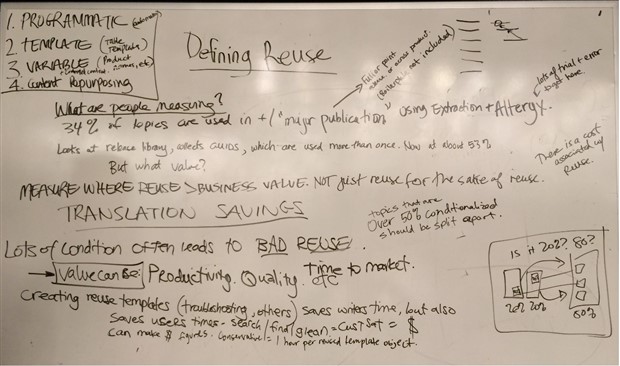 1. PROGRAMMATIC
2. TEMPLATE (Table Templates)
3. VARIABLE (Product names, etc)
4. Content Repurposing
Defining Reuse
Full or point
same or across product.
(Boilerplate not included)
lots of trial + error
to get here.
What are people measuring?
34% of topics are used in +1 "major publication" using Extraction + Alteryx.
Looks at release library, collects GUIDS, which are used more than once. Now at about 53%
But what value?
There is a cost
associated w/
Reuse.
MEASURE WHERE REUSE > BUSINESS VALUE. NOT just reuse for the sake of reuse.
TRANSLATION SAVINGS
topics that are
over 50% conditionalized
should be split apart.
Lots of condition often leads to BAD REUSE.
Value can be: Productivity. Quality. Time to market. etc
Is it 20%? 80%?
20% 20%
60%
Creating reuse templates (troubleshooting, others) saves writers time, but also
Saves users times - search/find/glean = Cust Sat = $
Can make $ figures. Conservative = 1 hour per reused template object.